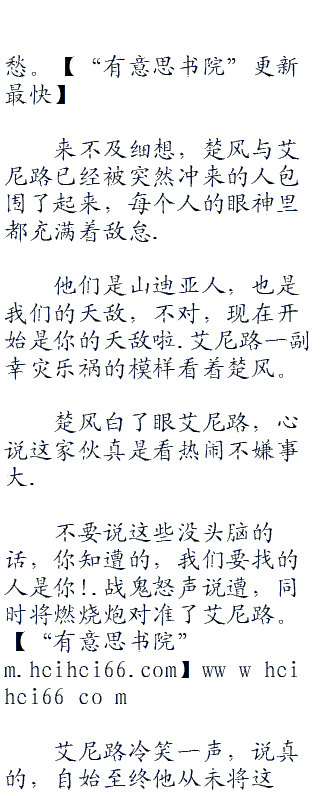 愁。【“有意思书院”更新
最快】
来不及细想，楚风与艾
尼路已经被突然冲来的人包
围了起来，每个人的眼神里
都充满着敌怠.
他们是山迪亚人，也是
我们的天敌，不对，现在开
始是你的天敌啦.艾尼路一副
幸灾乐祸的模样看着楚风。
楚风白了眼艾尼路，心
说这家伙真是看热闹不嫌事
大.
不要说这些没头脑的
话，你知遭的，我们要找的
人是你!.战鬼怒声说遭，同
时将燃烧炮对准了艾尼路。
【“有意思书院”
m.hcihci66.com】ww w hci
hci66 co m
艾尼路冷笑一声，说真
的，自始至终他从未将这